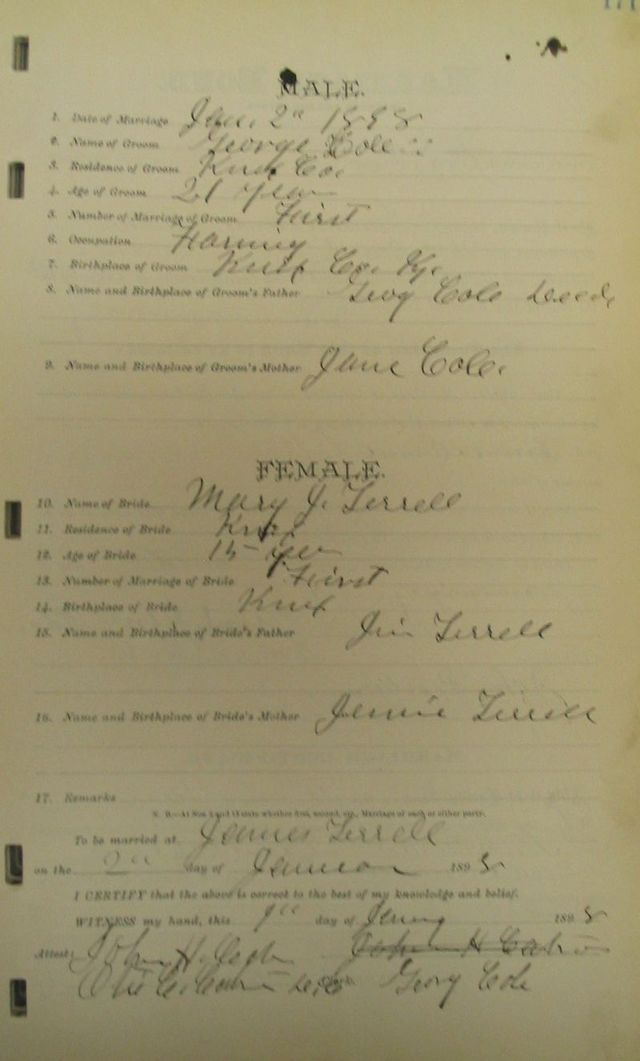 171
MALE.
1. Date of Marriage Jan. 2" 1898
2. Name of Groom George Cole
3. Residence of Groom Knox Co.
4. Age of Groom 21 year
5. Number of Marriage of Groom First
6. Occupation Farming
7. Birthplace of Groom Knox Co. Ky.
8. Name and Birthplace of Groom's Father Cole
9. Name and Birthplace of Groom's Mother Jane Cole.
FEMALE.
10. Name of Bride Mary J. Terrell
11. Residence of Bride Knox
12. Age of Bride
13. Number of Marriage of Bride First
14. Birthplace of Bride Knox
15. Name and Birthplace of Bride's Father Jim Terrell
16. Name and Birthplace of Bride's Mother Jennie Terrell
17. Remarks
N. B.—At Nos. 5 and 13 state whether first, second, etc., Marriage of each or either party.
To be married at James Terrell
on the 2" day of 1898
I CERTIFY that the above is correct to the best of my knowledge and belief.
WITNESS my hand, this day of 1898
Attest: John H. John H
Cole